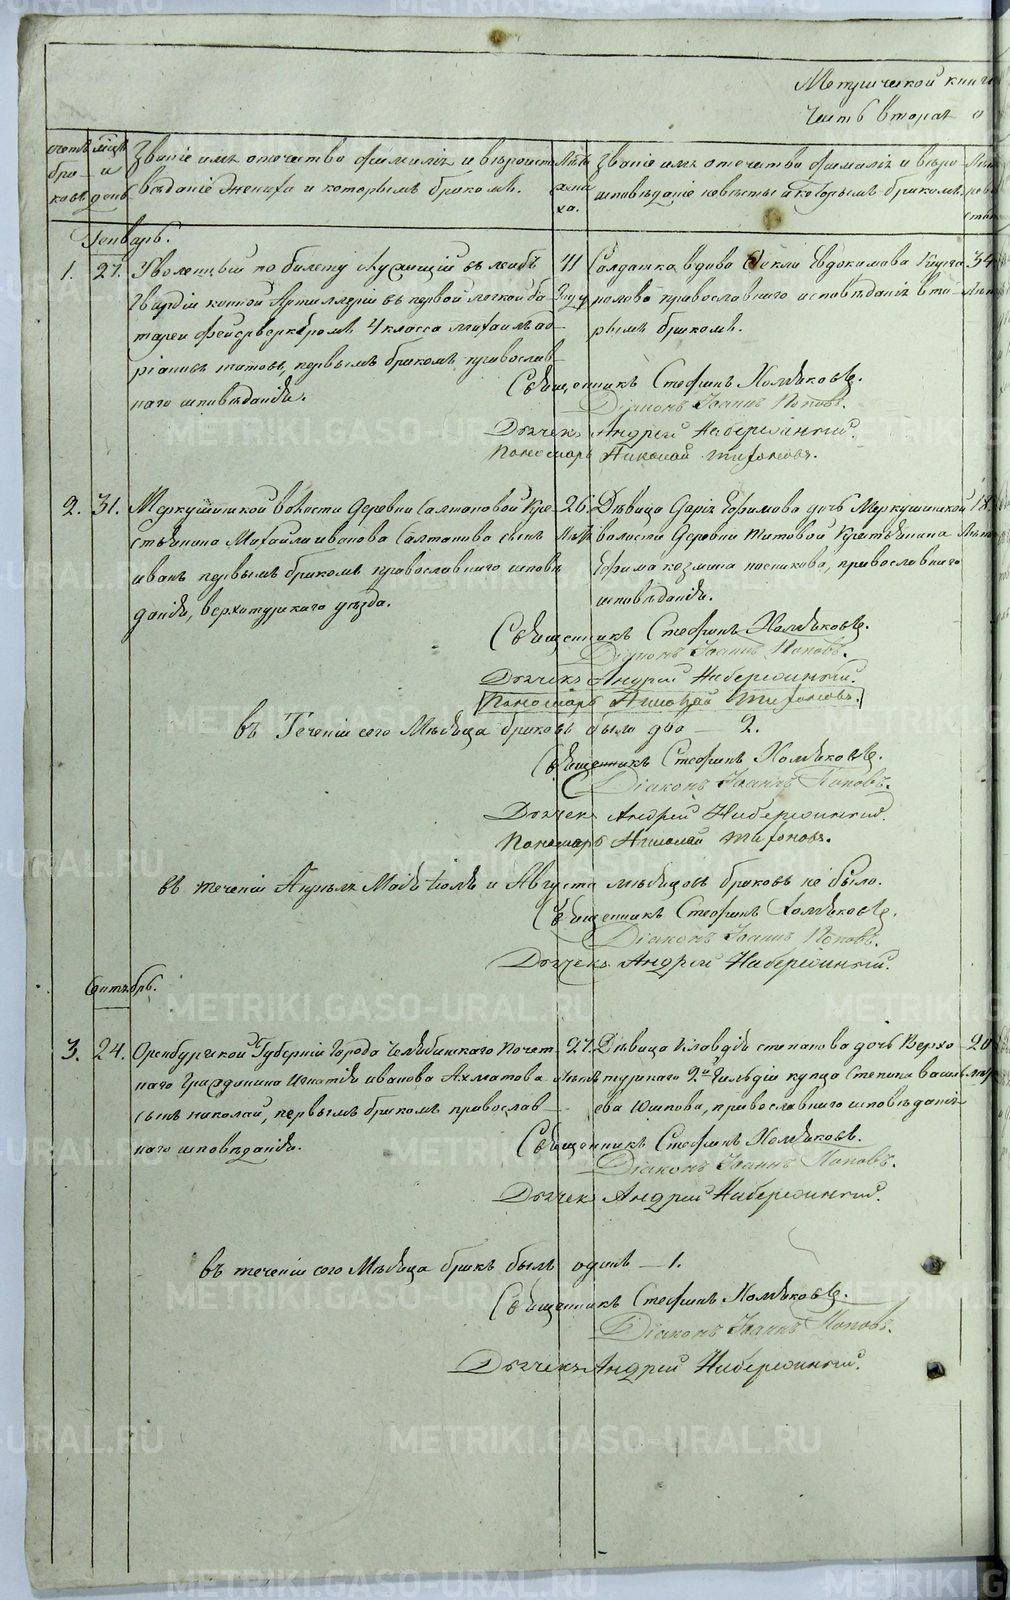 Метрической книги
часть вторая о
счетъ браковъ
мѣсяцъ и день
Званіе имя отечество фамилія и вѣроисповѣданіе жениха и которымъ бракомъ.
Лѣта жениха.
Званіе имя отечество фамилія и вѣроисповѣданіе невѣсты и которымъ бракомъ.
Генварь.
1. 27. Уволенный по билету служащій въ лейбъ
Гвардіи конной Артиллеріи въ первой легкой ба
тареи фейерверкеромъ 4 класса
первымъ бракомъ православ
наго исповѣданія.
41 году
Салдатка вдова Ѳекла Евдокимова
православнаго исповѣданія вто
рымъ бракомъ.
34 лѣтъ
Священникъ Стефанъ Хомяковъ.
Діаконъ Іоаннъ Поповъ.
Дьячекъ Андрей Набережный.
Пономарь Николай Тихоновъ.
2. 31. Меркушинской волости деревни Салтановой кре
стьянина Михайла иванова Салтанова сынъ
иванъ первымъ бракомъ православнаго исповѣ
данія, верхотурскаго уѣзда.
26. лѣтъ
Дѣвица Дарія Ефимова дочь Меркушинской
волости деревни Титовой крестьянина
Ефима козмина посникова, православнаго
исповѣданія.
18 лѣтъ
Священникъ Стефанъ Хомяковъ.
Діаконъ Іоаннъ Поповъ.
Дьячекъ Андрей Набережный.
Пономарь Николай Тихоновъ.
въ Теченіи сего Мѣсяца браковъ было два — 2.
Священникъ Стефанъ Хомяковъ.
Діаконъ Іоаннъ Поповъ.
Дьячекъ Андрей Набережный.
Пономарь Николай Тихоновъ.
въ теченіи Апреля Маія Іюля и Августа мѣсяцовъ браковъ не было.
Священникъ Стефанъ Хомяковъ.
Діаконъ Іоаннъ Поповъ.
Дьячекъ Андрей Набережный.
Сентябрь.
3. 24. Оренбургской Губерніи Города Челябинскаго Почет
наго Гражданина Игнатія иванова Ахматова
сынъ николай, первымъ бракомъ православ
наго исповѣданія.
27. лѣтъ
Дѣвица Клавдія степанова дочь Верхо
турскаго 2й Гильдіи купца Степана василь
ева Юшкова, православнаго исповѣданія
20 лѣтъ
Священникъ Стефанъ Хомяковъ.
Діаконъ Іоаннъ Поповъ.
Дьячекъ Андрей Набережный.
въ теченіи сего Мѣсяца бракъ былъ одинъ — 1.
Священникъ Стефанъ Хомяковъ.
Діаконъ Іоаннъ Поповъ.
Дьячекъ Андрей Набережный.
METRIKI.GASO-URAL.RU